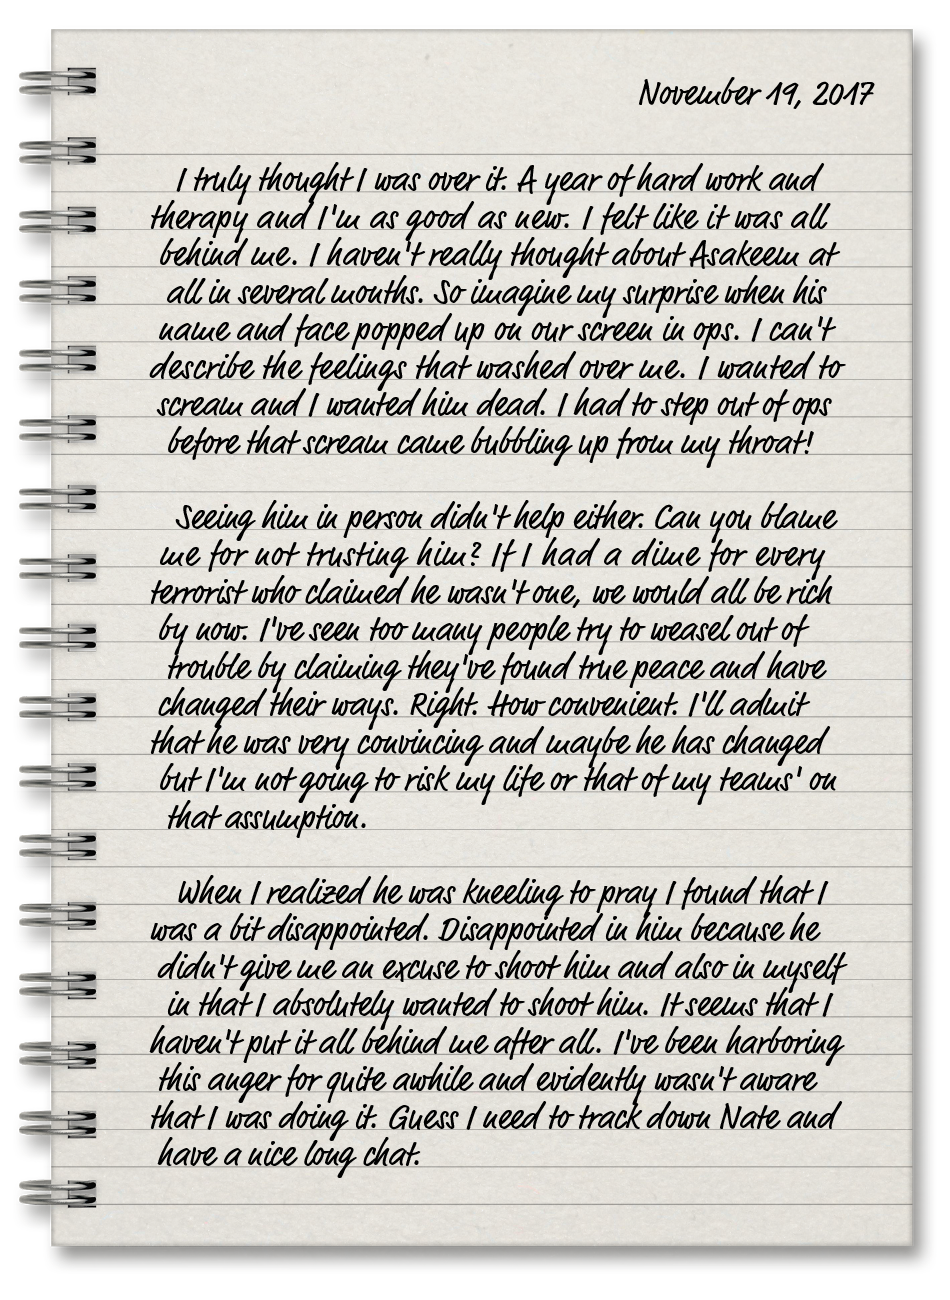 November 19, 2017
I truly thought I was over it. A year of hard work and
therapy and I'm as good as new. I felt like it was all
behind me. I haven't really thought about Asakeem at
all in several months. So imagine my surprise when his
name and face popped up on our screen in ops. I can't
describe the feelings that washed over me. I wanted to
scream and I wanted him dead. I had to step out of ops
before that scream came bubbling up from my throat!
Seeing him in person didn't help either. Can you blame
me for not trusting him? If I had a dime for every
terrorist who claimed he wasn't one, we would all be rich
by now. I've seen too many people try to weasel out of
trouble by claiming they've found true peace and have
changed their ways. Right. How convenient. I'll admit
that he was very convincing and maybe he has changed
but I'm not going to risk my life or that of my teams' on
that assumption.
When I realized he was kneeling to pray I found that I
was a bit disappointed. Disappointed in him because he
didn't give me an excuse to shoot him and also in myself
in that I absolutely wanted to shoot him. It seems that I
haven't put it all behind me after all. I've been harboring
this anger for quite awhile and evidently wasn't aware
that I was doing it. Guess I need to track down Nate and
have a nice long chat.